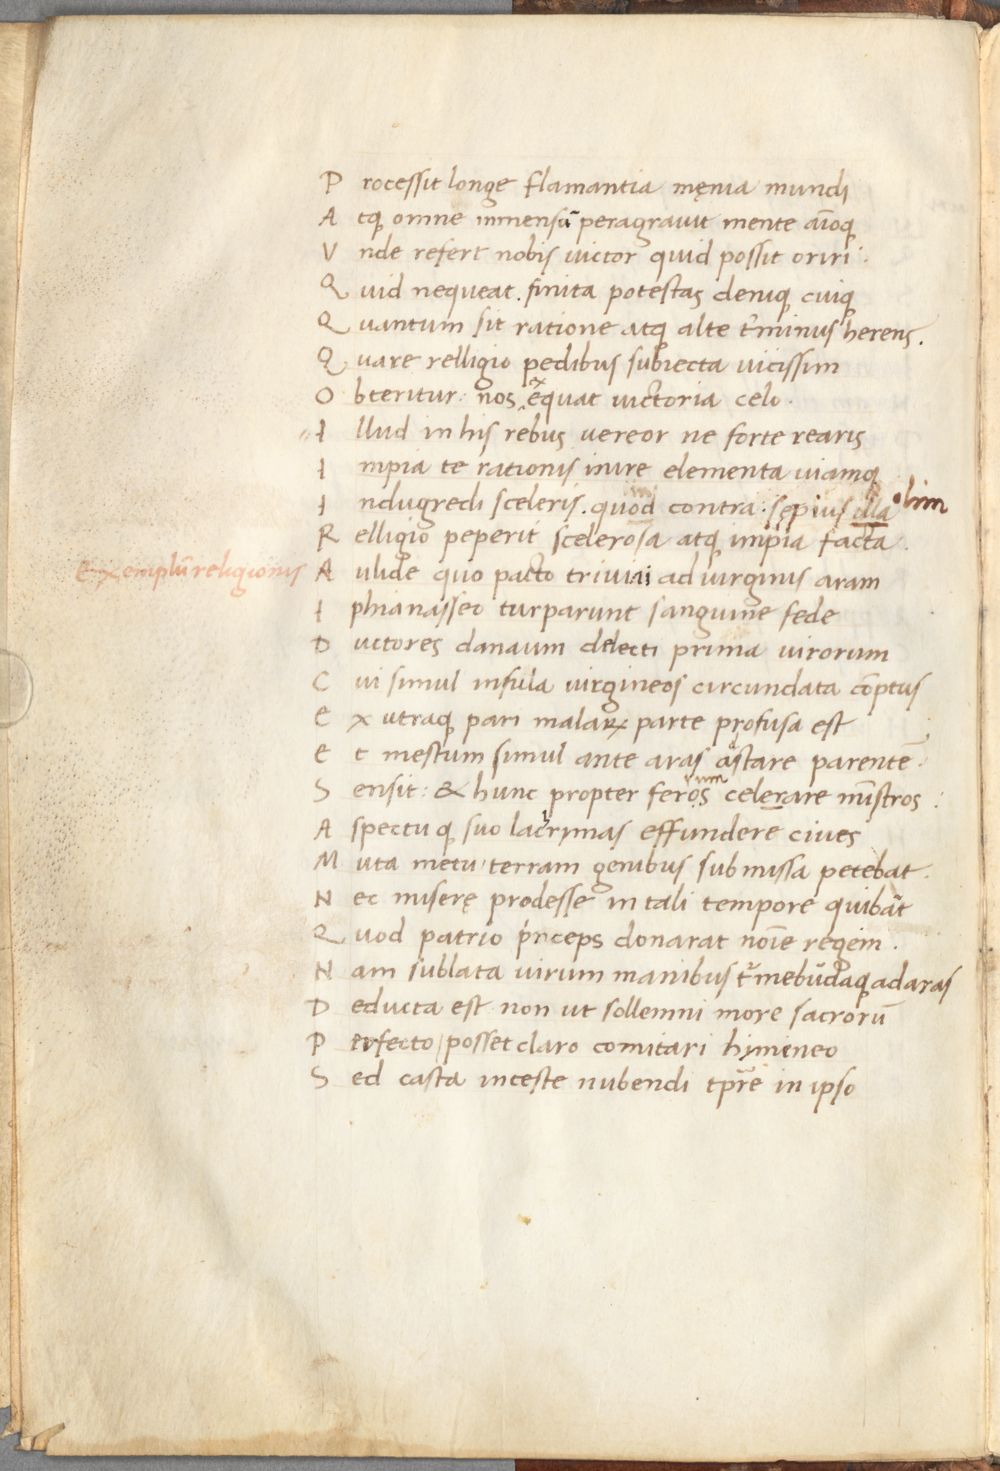 P rocessit longe flamantia męnia mundi
A tq; omne inmensū peragrauit mente aīoq;
V nde refert nobis uictor quid possit oriri .
Q uid nequeat . finita potestas deniq; cuiq;
Q uantum sit ratione atq; alte t̄minus herens .
Q uare relligio pedibus subiecta uicissim
O bteritur : nos exęquat uictoria celo .
I llud in his rebus uereor ne forte rearis
I mpia te rationis inire elementa uiamq;
I ndugredi sceleris . quod contra . sępius illa olim
R elligio peperit scelerosa atq; impia facta .
Exemplū religionis A ulide quo pacto triviai ad uirginis aram
I phianasseo turparunt sanguine fede
D uctores danaum delecti prima uirorum
C ui simul infula uirgineos circundata cōptus
E x utraq; pari malaꝝ parte profusa est
E t mestum simul ante aras astare parentē .
S ensit : & hunc propter feros celerare mīstros :
A spectuq; suo lacrymas effundere ciues
M uta metu terram genibus submissa petebat .
N ec miserę prodesse in tali tempore quibāt
Q uod patrio princeps donarat noīe regem .
N am sublata uirum manibus t̄mebūdaq; ad aras
D educta est non ut sollemni more sacrorū
P erfecto posset claro comitari hymineo
S ed casta inceste nubendi tp̄re in ipso